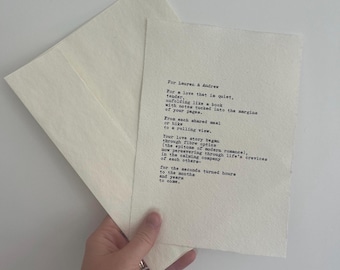 For Lauren & Andres
For a love that is quiet,
tender,
unfolding like a book
with notes tucked into the margins
of your pages.
From each shared meal
or hike
or a rolling view.
Your love story began
through fibre optics
(the epitome of modern romance),
now persevering through life's crevices
in the calming company
of each others—
for the seconds turned hours
to the months
and years
to come.